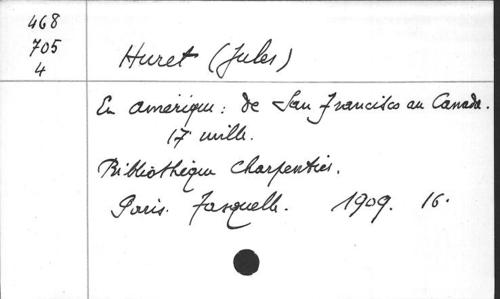 468
705
4
Huret (Jules)
En Amérique: de San Francisco au Canada.
17 mille.
Bibliothèque Charpentier.
Paris. Fasquelle. 1909. 16.